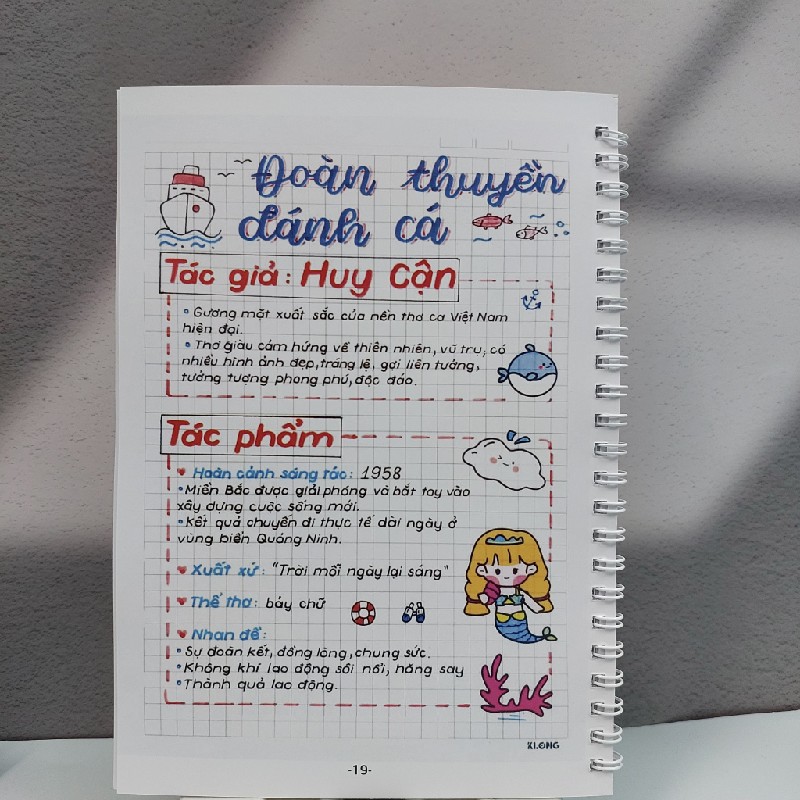 Đoàn thuyền
đánh cá
Tác giả: Huy Cận
• Gương mặt xuất sắc của nền thơ ca Việt Nam
hiện đại.
• Thơ giàu cảm hứng về thiên nhiên, vũ trụ, có
nhiều hình ảnh đẹp, tráng lệ, gợi liên tưởng,
tưởng tượng phong phú, độc đáo.
Tác phẩm
Hoàn cảnh sáng tác: 1958
• Miền Bắc được giải phóng và bắt tay vào
xây dựng cuộc sống mới.
• Kết quả chuyến đi thực tế dài ngày ở
vùng biển Quảng Ninh.
Xuất xứ: "Trời mỗi ngày lại sáng"
Thể thơ: bảy chữ
Nhan đề:
• Sự đoàn kết, đồng lòng, chung sức.
• Không khí lao động sôi nổi, hăng say
• Thành quả lao động.
KLONG
-19-